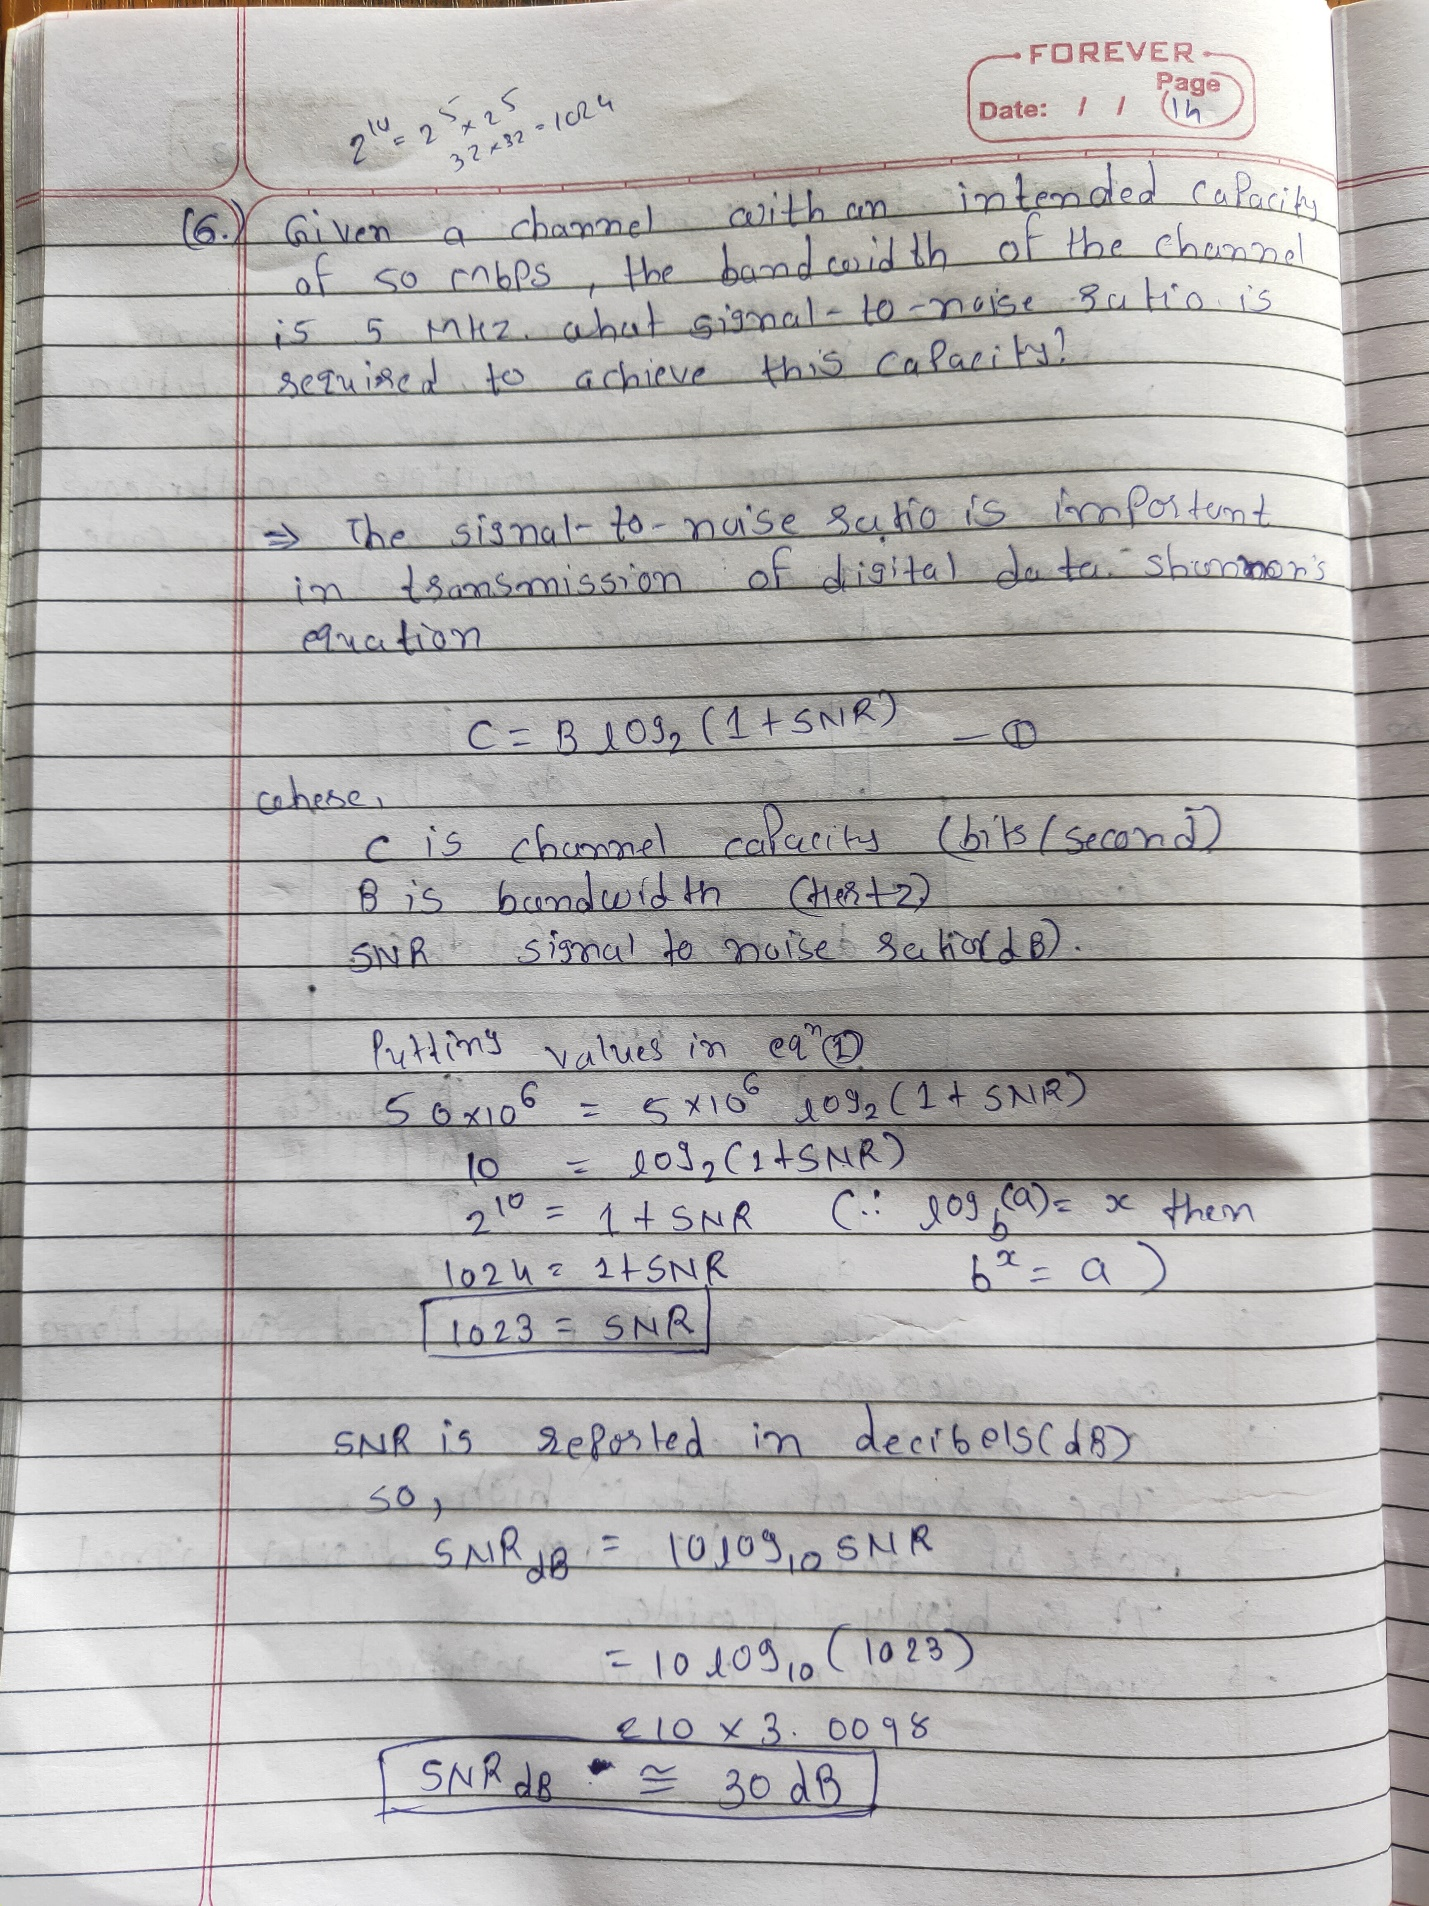 FOREVER
Page
Date: / / 14
2^10 = 2^5 × 2^5
32×32 = 1024
(6.) Given a channel with an intended capacity
of 50 mbps, the bandwidth of the channel
is 5 MHz. what signal-to-noise ratio is
required to achieve this capacity?
⇒ The signal-to-noise ratio is important
in transmission of digital data. shannon's
equation
C = B log₂ (1 + SNR) — ①
where,
C is channel capacity (bits/second)
B is bandwidth (Hertz)
SNR signal to noise ratio (dB).
Putting values in eqⁿ ①
50×10^6 = 5×10^6 log₂ (1 + SNR)
10 = log₂ (1+SNR)
2^10 = 1 + SNR (∵ log_b(a) = x then
1024 = 1+SNR b^x = a)
1023 = SNR
SNR is reported in decibels (dB)
so,
SNR_dB = 10 log₁₀ SNR
= 10 log₁₀ (1023)
= 10 × 3.0098
SNR_dB ≅ 30 dB